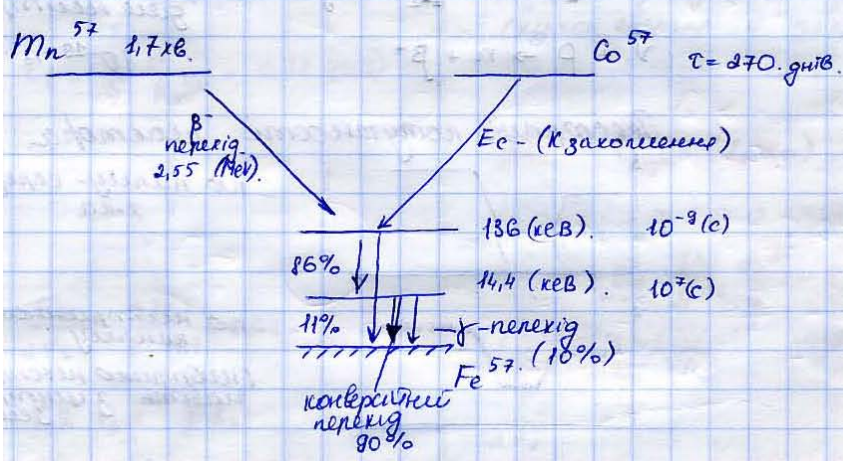 Mn⁵⁷ 1,7хв.
Co⁵⁷ τ = 270. днів.
β⁻
перехід
2,55 (MeV).
Ec - (К захоплення)
136 (кеВ). 10⁻⁹(с)
86%
14,4 (кеВ). 10⁷(с)
11%
γ-перехід
(10%)
Fe⁵⁷.
конверсійний
перехід
90%